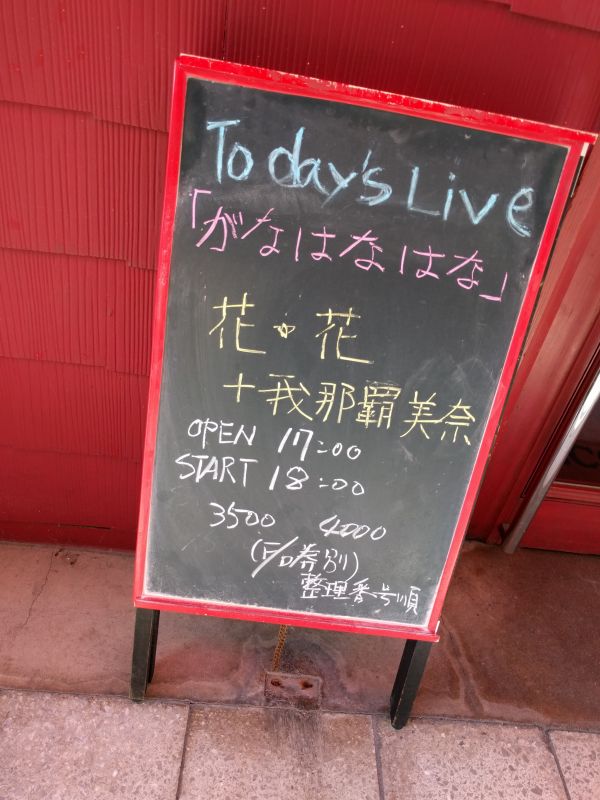 Today's Live
「がなはなはな」
花*花
+我那覇美奈
OPEN 17:00
START 18:00
3500 4000
(F/D券別)
整理番号順